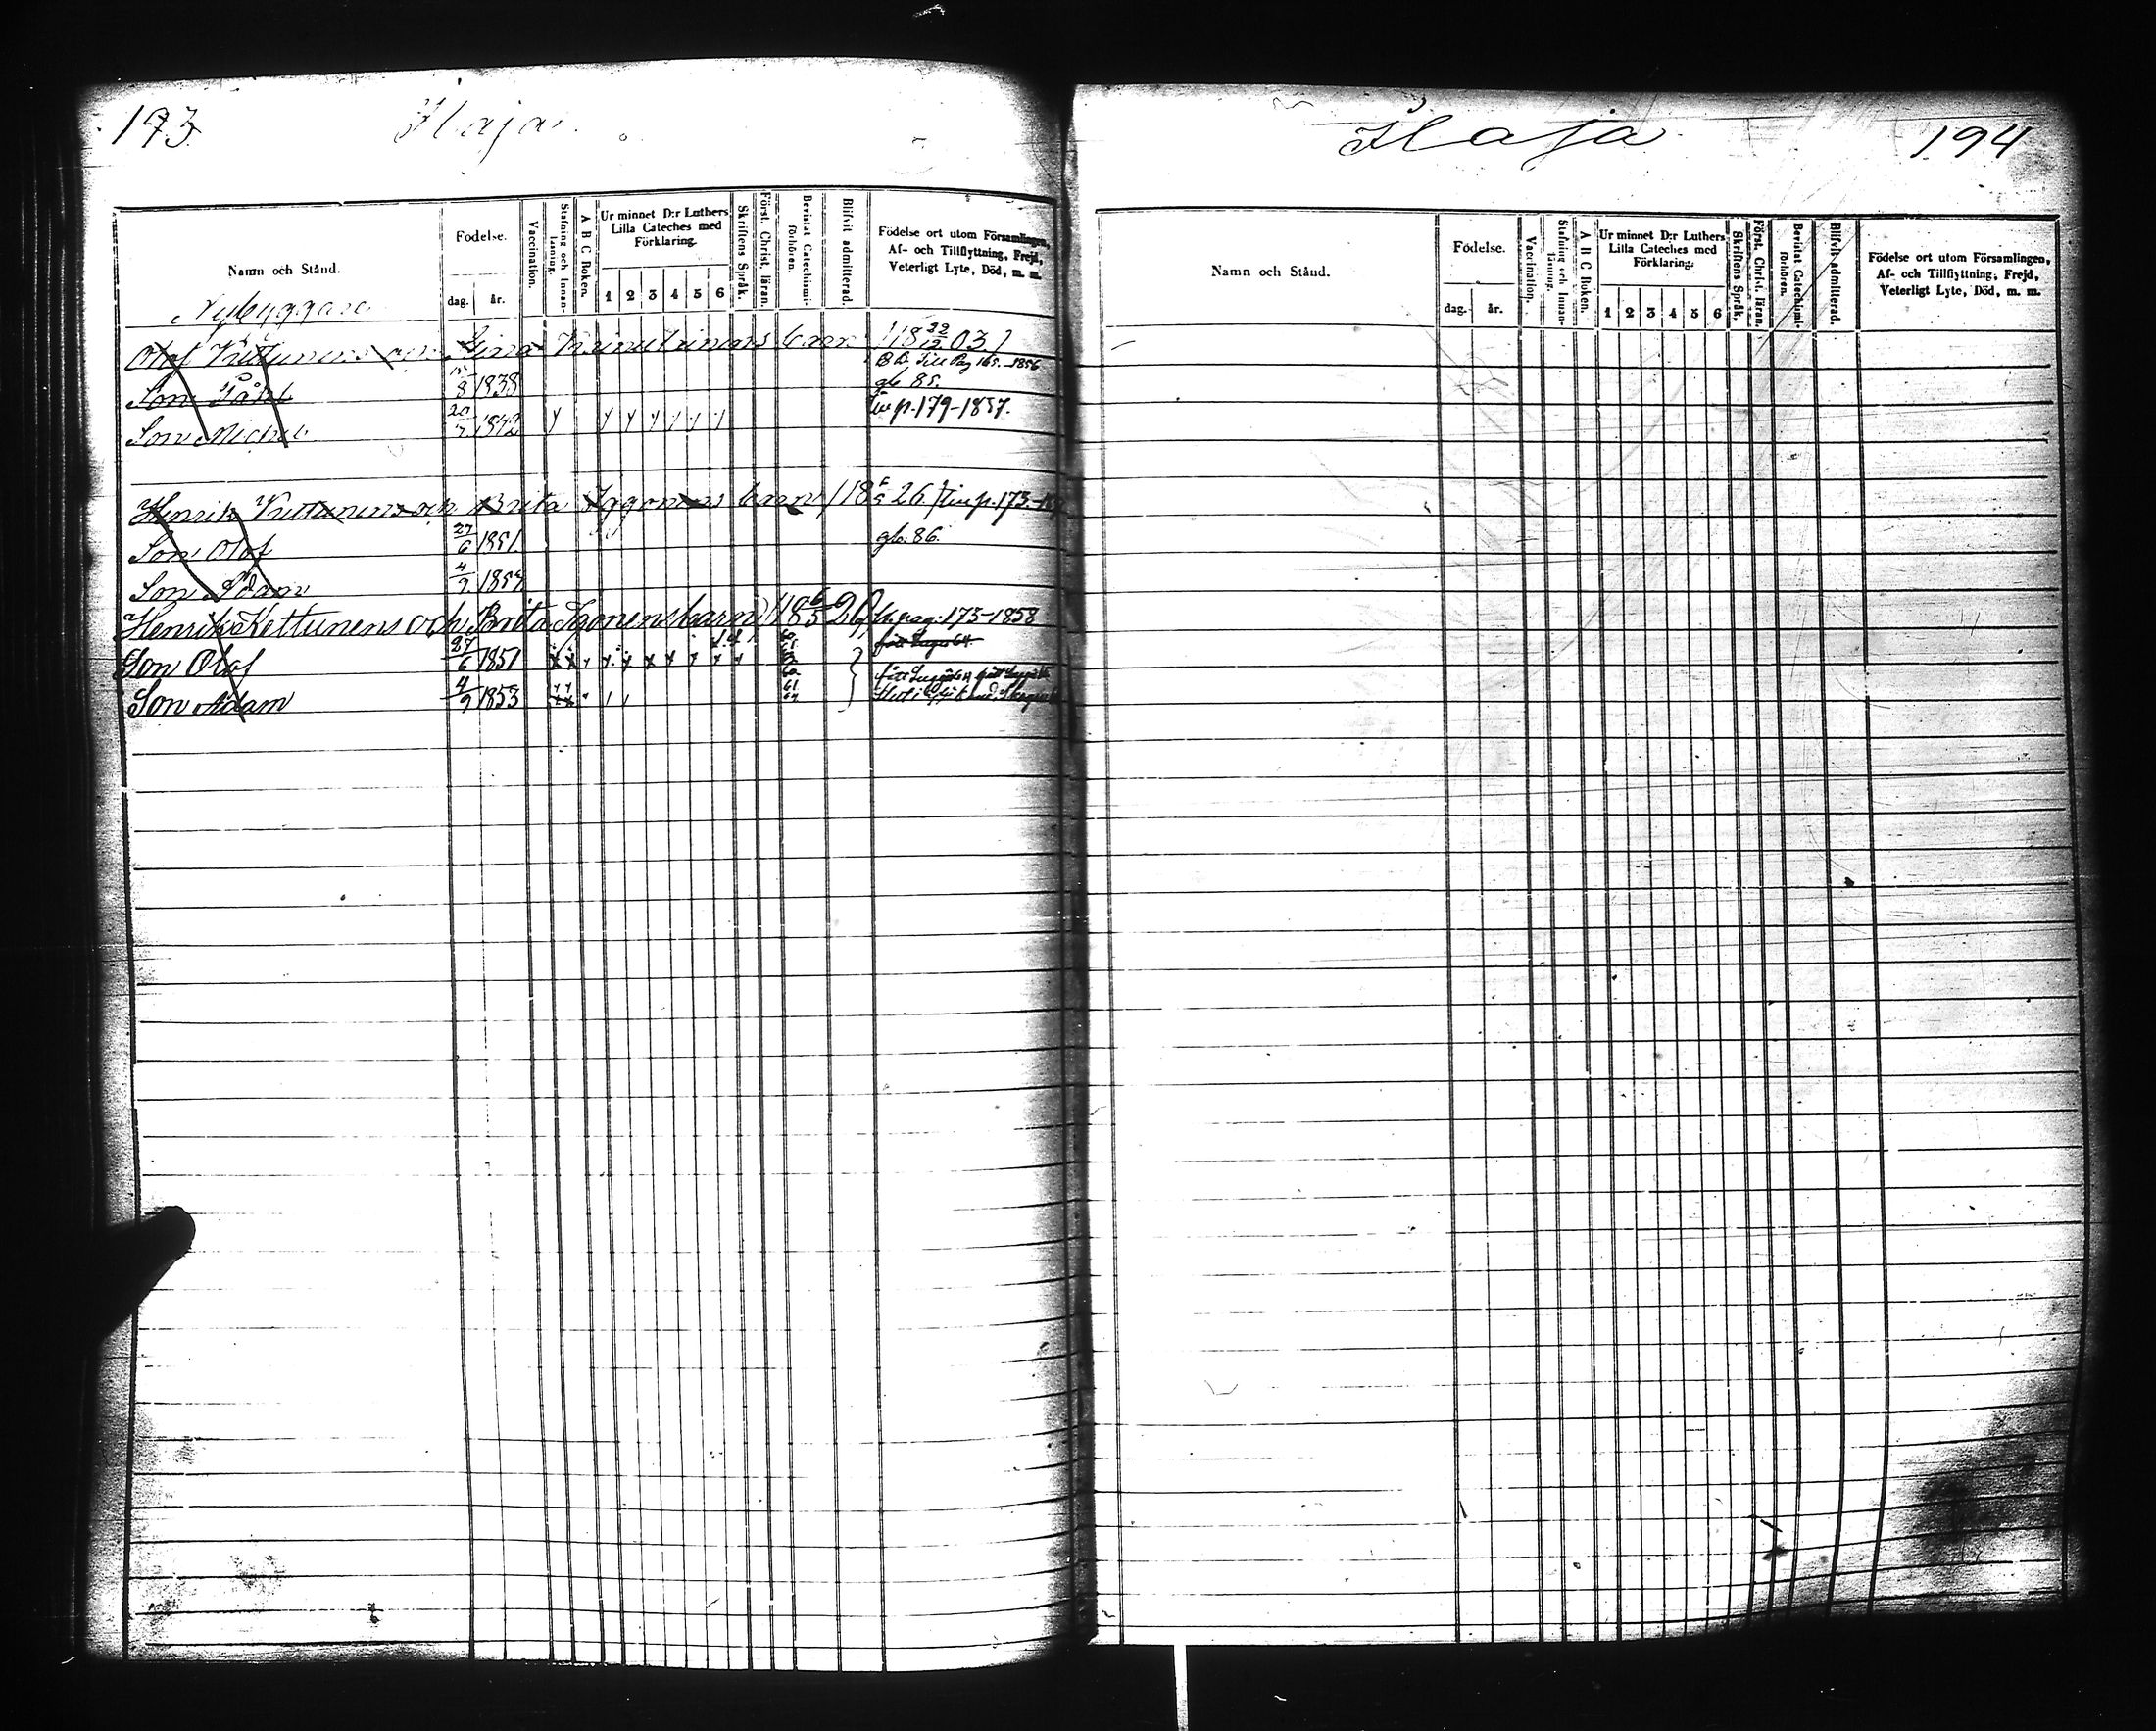 193
Ilaja
Namn och Stånd.
Födelse.
dag.
år.
Vaccination.
Stafning och Innanläsning.
A B C Boken.
Ur minnet D:r Luthers
Lilla Cateches med
Förklaring.
1 2 3 4 5 6
Skriftens Språk.
Först. Christ. läran.
Bevistat Catechismiförhören.
Blifvit admitterad.
Födelse ort utom Församlingen,
Af- och Tillflyttning, Frejd,
Veterligt Lyte, Död, m. m.
Nybyggare
Olof Kettunens och barn /18 22/12 03/
Till Pag 165.-1856
Son Påhl 8 1838 gb 85.
Son Michel 20/7 1842 p. 179-1857.
Henrik Kettunens och Brita Iggonens barn /18 6/5 26/ p. 173.
Son Olof 27/6 1851 gb. 86.
Son Adam 4/9 1853
Henrik Kettunens och Brita Igonens barn /18 6/5 26/ pag: 173-1858
Son Olof 27/6 1851
Son Adam 4/9 1853 61
Ilaja
194
Namn och Stånd.
Födelse.
dag.
år.
Vaccination.
Stafning och Innanläsning.
A B C Boken.
Ur minnet D:r Luthers
Lilla Cateches med
Förklaring.
1 2 3 4 5 6
Skriftens Språk.
Först. Christ. läran.
Bevistat Catechismiförhören.
Blifvit admitterad.
Födelse ort utom Församlingen,
Af- och Tillflyttning, Frejd,
Veterligt Lyte, Död, m. m.